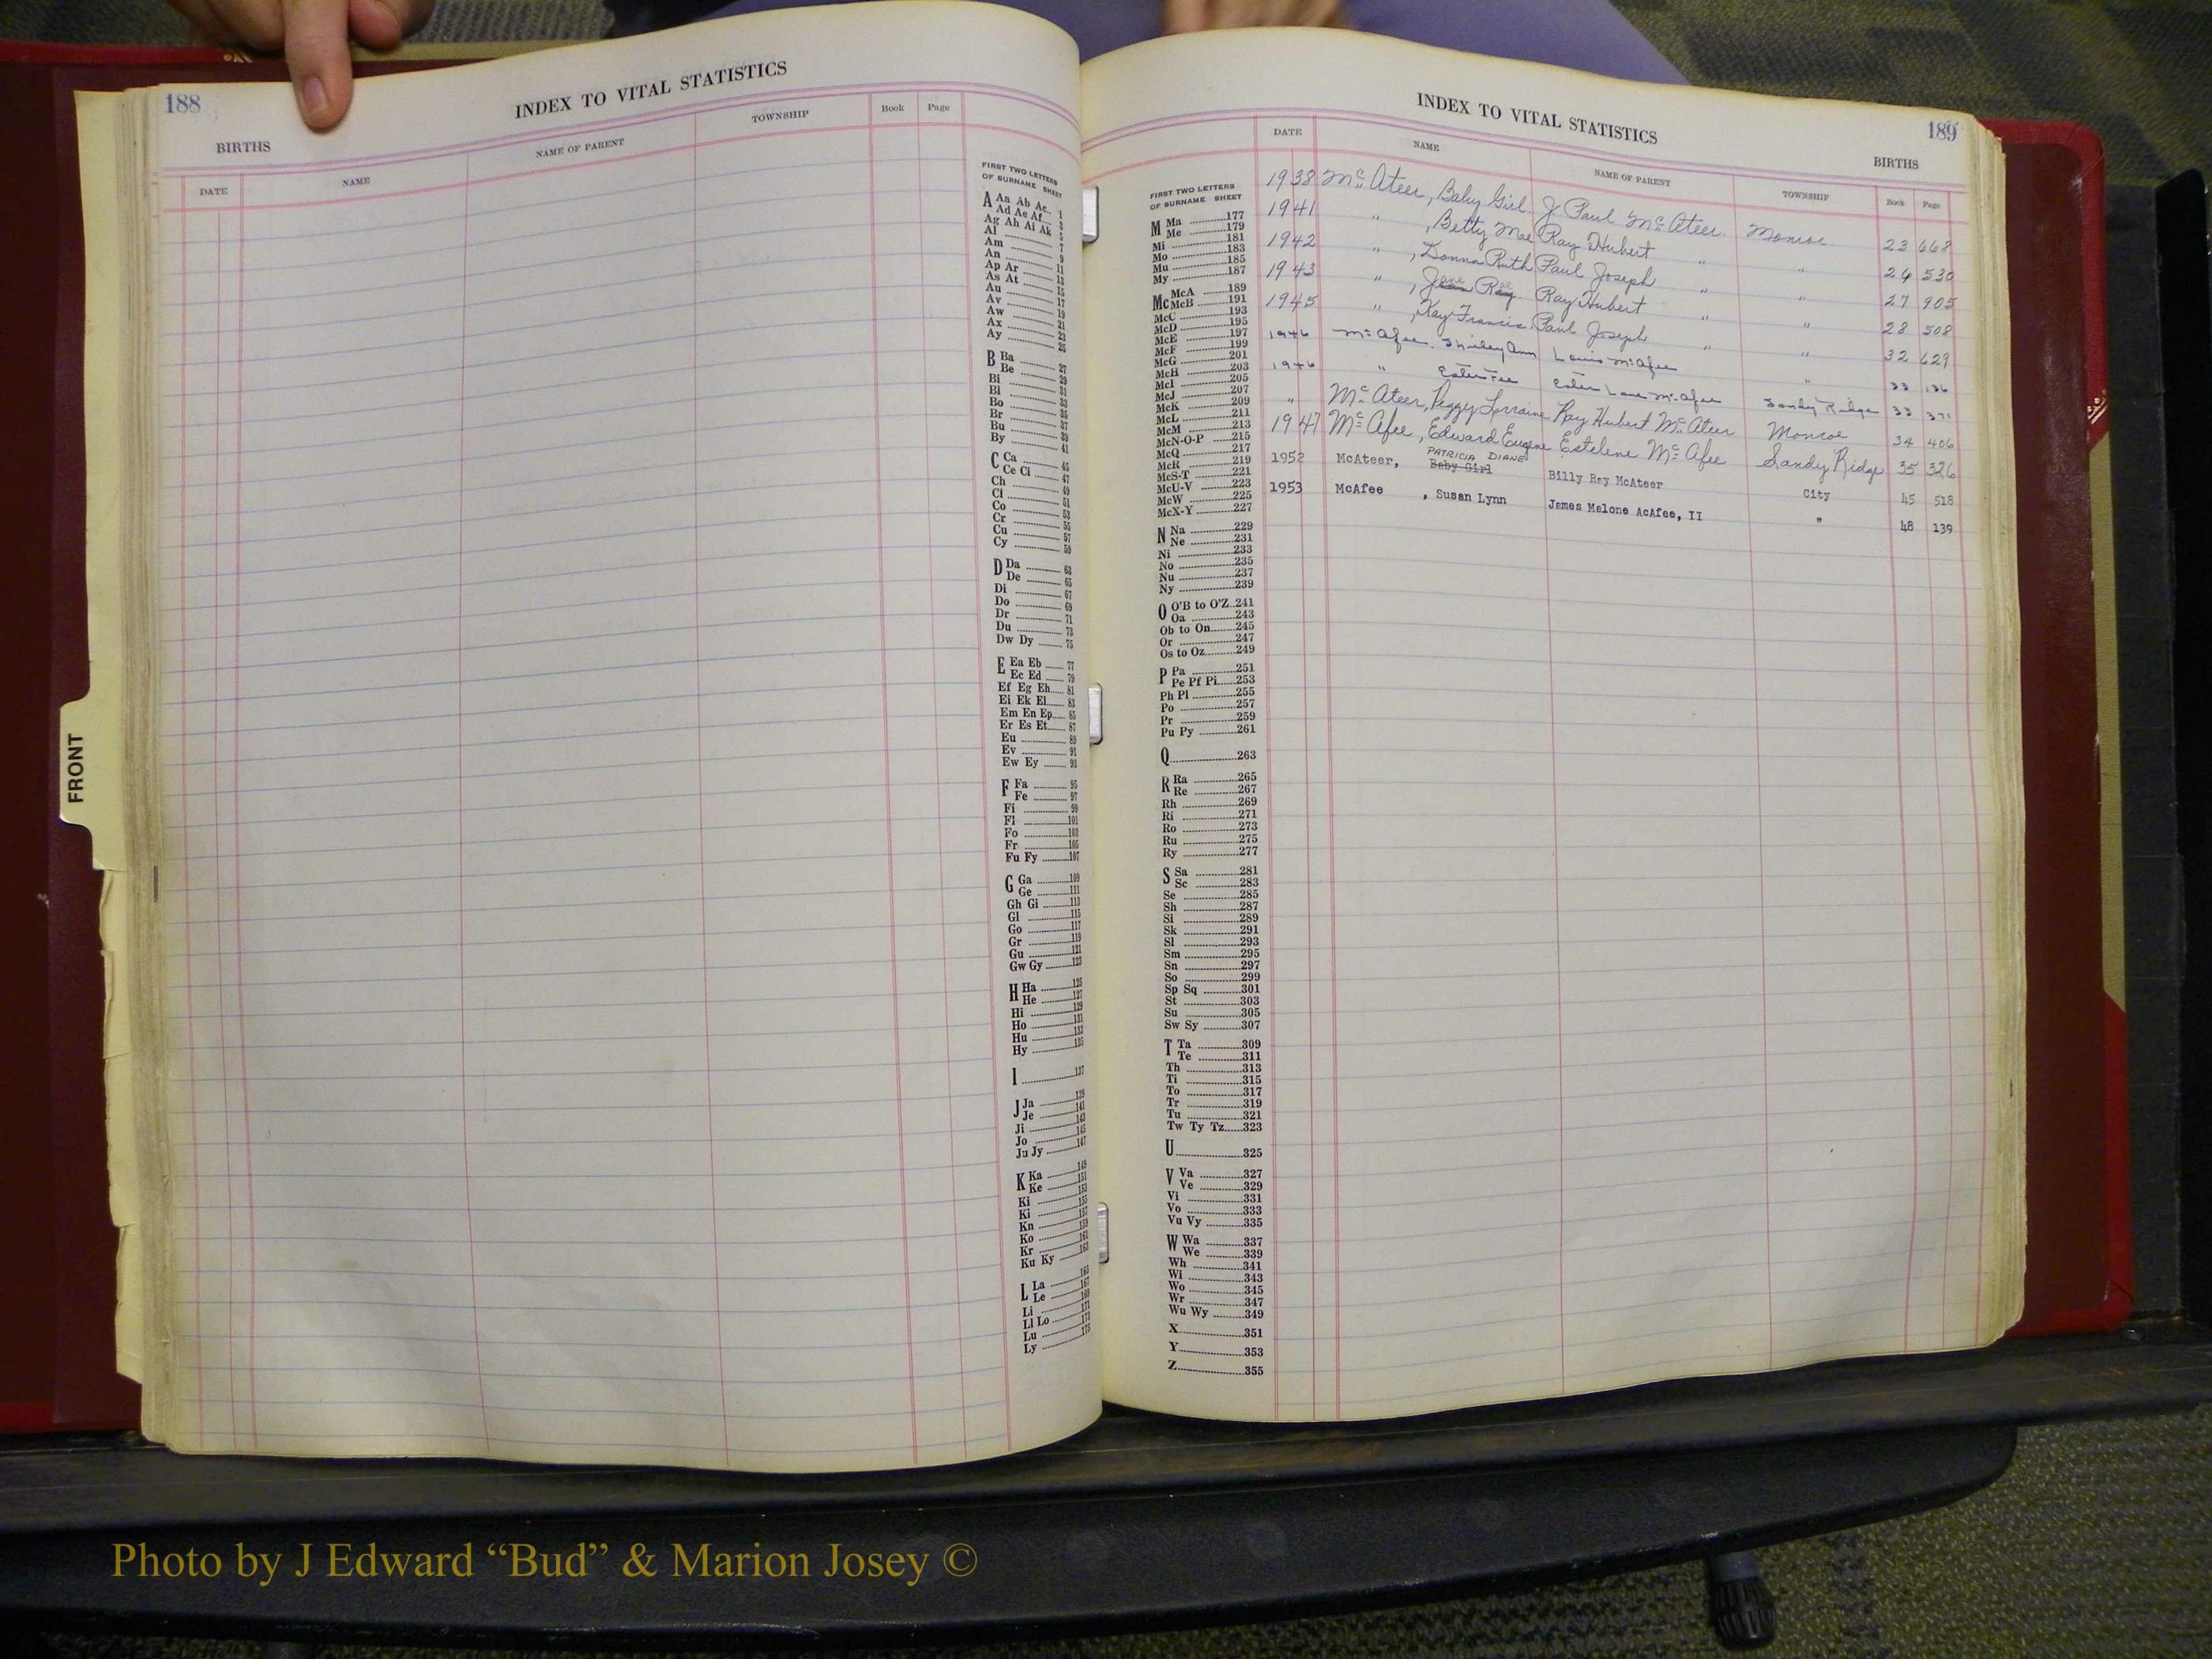 188
INDEX TO VITAL STATISTICS
BIRTHS
DATE NAME NAME OF PARENT TOWNSHIP Book Page
FIRST TWO LETTERS
OF SURNAME SHEET
A Aa Ab Ac 1
Ad Ae Af 3
Ag Ah Ai Ak 5
Al 7
Am 9
An 11
Ap Ar 13
As At 15
Au 17
Av 19
Aw 21
Ax 23
Ay 25
B Ba 27
Be 29
Bi 31
Bl 33
Bo 35
Br 37
Bu 39
By 41
C Ca 45
Ce Ci 47
Ch 49
Cl 51
Co 53
Cr 55
Cu 57
Cy 59
D Da 63
De 65
Di 67
Do 69
Dr 71
Du 73
Dw Dy 75
E Ea Eb 77
Ec Ed 79
Ef Eg Eh 81
Ei Ek El 83
Em En Ep 85
Er Es Et 87
Eu 89
Ev 91
Ew Ey 93
F Fa 95
Fe 97
Fi 99
Fl 101
Fo 103
Fr 105
Fu Fy 107
G Ga 109
Ge 111
Gh Gi 113
Gl 115
Go 117
Gr 119
Gu 121
Gw Gy 123
H Ha 125
He 127
Hi 129
Ho 131
Hu 133
Hy 135
I 137
J Ja 139
Je 141
Ji 143
Jo 145
Ju Jy 147
K Ka 149
Ke 151
Ki 153
Ki 155
Kn 157
Ko 159
Kr 161
Ku Ky 163
L La 165
Le 167
Li 169
Ll Lo 171
Lu 173
Ly 175
FRONT
INDEX TO VITAL STATISTICS
189
BIRTHS
DATE NAME NAME OF PARENT TOWNSHIP Book Page
FIRST TWO LETTERS
OF SURNAME SHEET
M Ma 177
Me 179
Mi 181
Mo 183
Mu 185
My 187
Mc McA 189
McB 191
McC 193
McD 195
McE 197
McF 199
McG 201
McH 203
McI 205
McJ 207
McK 209
McL 211
McM 213
McN-O-P 215
McQ 217
McR 219
McS-T 221
McU-V 223
McW 225
McX-Y 227
N Na 229
Ne 231
Ni 233
No 235
Nu 237
Ny 239
O O'B to O'Z 241
Oa 243
Ob to On 245
Or 247
Os to Oz 249
P Pa 251
Pe Pf Pi 253
Ph Pl 255
Po 257
Pr 259
Pu Py 261
Q 263
R Ra 265
Re 267
Rh 269
Ri 271
Ro 273
Ru 275
Ry 277
S Sa 281
Sc 283
Se 285
Sh 287
Si 289
Sk 291
Sl 293
Sm 295
Sn 297
So 299
Sp Sq 301
St 303
Su 305
Sw Sy 307
T Ta 309
Te 311
Th 313
Ti 315
To 317
Tr 319
Tu 321
Tw Ty Tz 323
U 325
V Va 327
Ve 329
Vi 331
Vo 333
Vu Vy 335
W Wa 337
We 339
Wh 341
Wi 343
Wo 345
Wr 347
Wu Wy 349
X 351
Y 353
Z 355
1938 McAteer, Baby Girl J. Paul McAteer Monroe 23 668
1941 " , Betty Mae Ray Hubert " " 26 530
1942 " , Donna Ruth Paul Joseph " " 27 905
1943 " , Ray Hubert " " 28 508
1945 " , Kay Francis Paul Joseph " " 32 629
1946 McAfee, Shirley Ann Louis McAfee " 33 136
1946 " Ester Lane McAfee Sandy Ridge 33 371
" McAteer, Peggy Lorraine Ray Hubert McAteer Monroe 34 406
1947 McAfee, Edward Eugene Estelene McAfee Sandy Ridge 35 326
1952 McAteer, PATRICIA DIANE Baby Girl Billy Ray McAteer City 45 518
1953 McAfee , Susan Lynn James Malone AcAfee, II " 48 139
Photo by J Edward “Bud” & Marion Josey ©